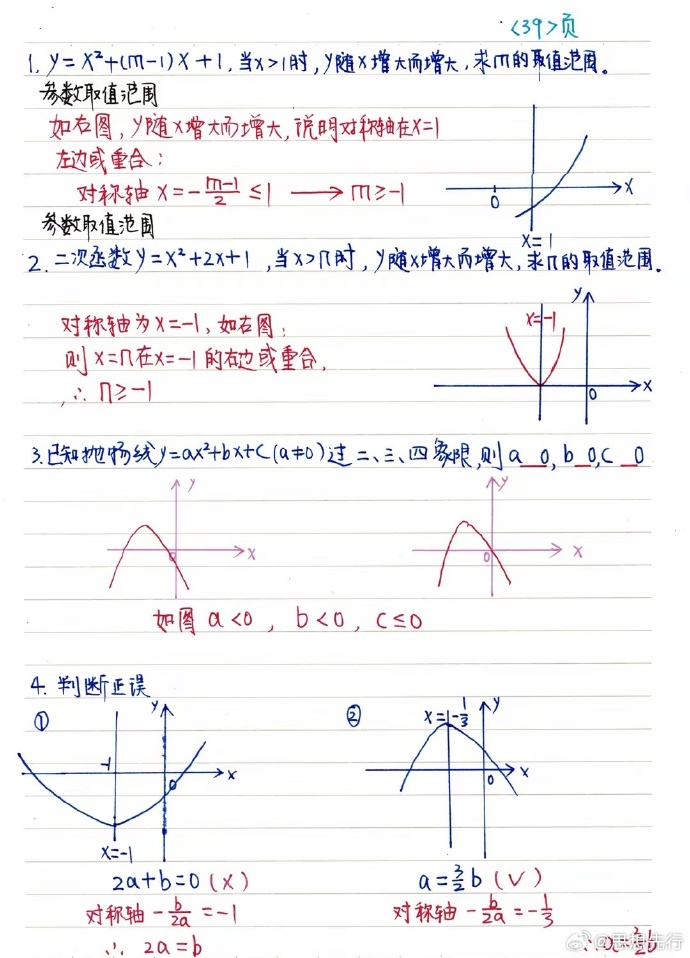 <39>页
1. y=x²+(m-1)x+1,当x>1时,y随x增大而增大,求m的取值范围。
参数取值范围
如右图,y随x增大而增大,说明对称轴在x=1
左边或重合:
对称轴 x=-\frac{m-1}{2}≤1 ⟶ m≥-1
x
0
x=1
参数取值范围
2. 二次函数y=x²+2x+1,当x>n时,y随x增大而增大,求n的取值范围。
对称轴为x=-1,如右图:
则x=n在x=-1的右边或重合,
∴ n≥-1
y
x=-1
0
x
3.已知抛物线y=ax²+bx+c(a≠0)过二、三、四象限,则a__0,b__0,c__0
y
0
x
y
0
x
如图 a<0, b<0, c≤0
4. 判断正误
①
y
-1
0
x
x=-1
2a+b=0(×)
对称轴 -\frac{b}{2a}=-1
∴ 2a=b
②
x=-\frac{1}{3}
y
0
x
a=\frac{3}{2}b(√)
对称轴 -\frac{b}{2a}=-\frac{1}{3}
∴a=\frac{3}{2}b
@思想先行